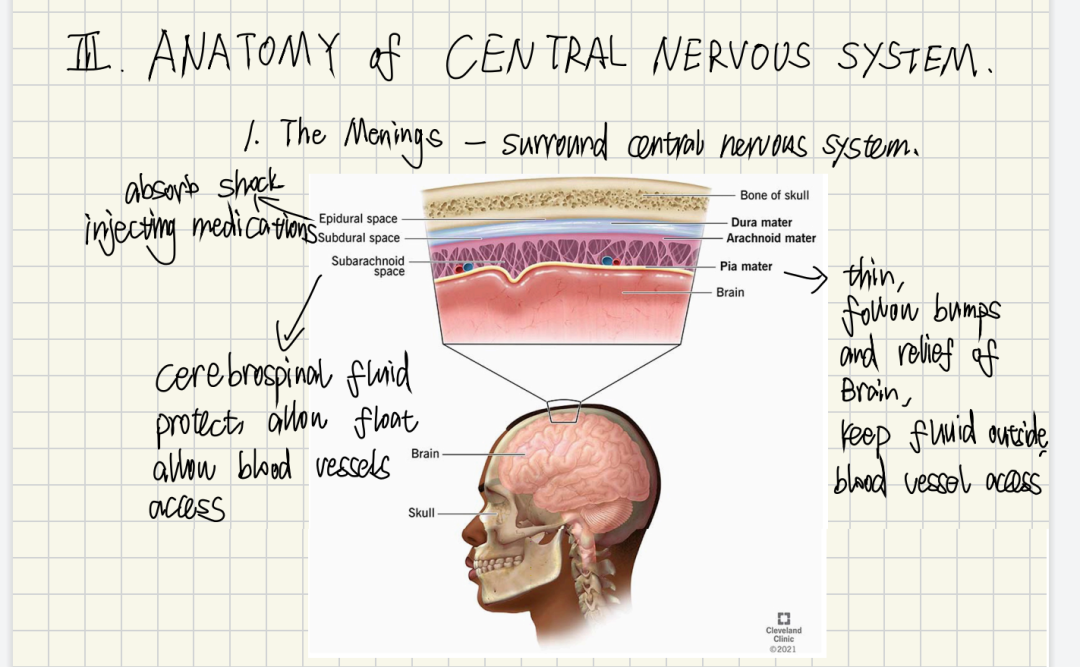 III. ANATOMY of CENTRAL NERVOUS SYSTEM.
1. The Menings – surround central nervous system.
absorb shock
injecting medications
Epidural space
Subdural space
Subarachnoid
space
Bone of skull
Dura mater
Arachnoid mater
Pia mater
Brain
thin,
follow bumps
and relief of
Brain,
keep fluid outside,
blood vessel access
cerebrospinal fluid
protect, allow float
allow blood vessels
access
Brain
Skull
Cleveland
Clinic
©2021